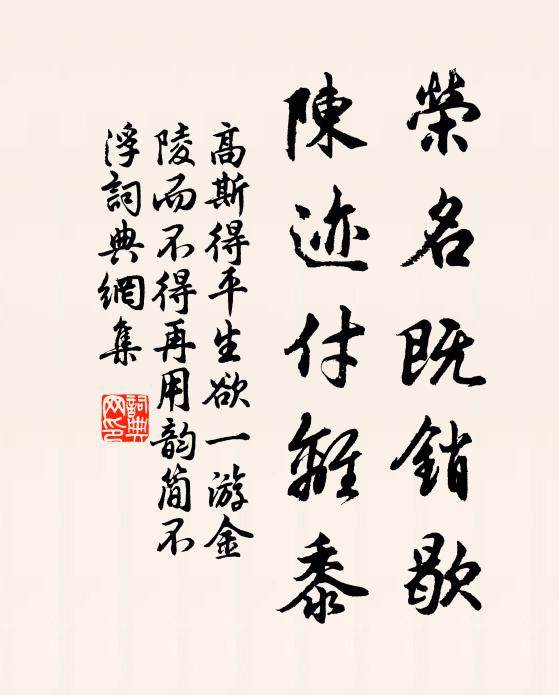 榮名既銷歇
陳迹付離黍
高斯得平生欲一游金
陵而不得再用韵簡不
浮詞典網集
詞典網印